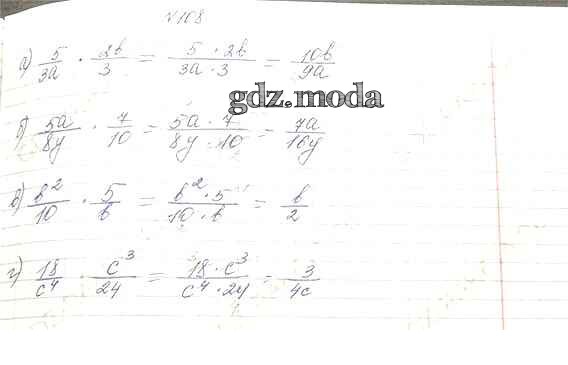 №108
а) 5/3a · 2b/3 = 5 · 2b/3a · 3 = 10b/9a
gdz.moda
б) 5a/8y · 7/10 = 5a · 7/8y · 10 = 7a/16y
в) b²/10 · 5/b = b² · 5/10 · b = b/2
г) 18/c⁴ · c³/24 = 18 · c³/c⁴ · 24 = 3/4c